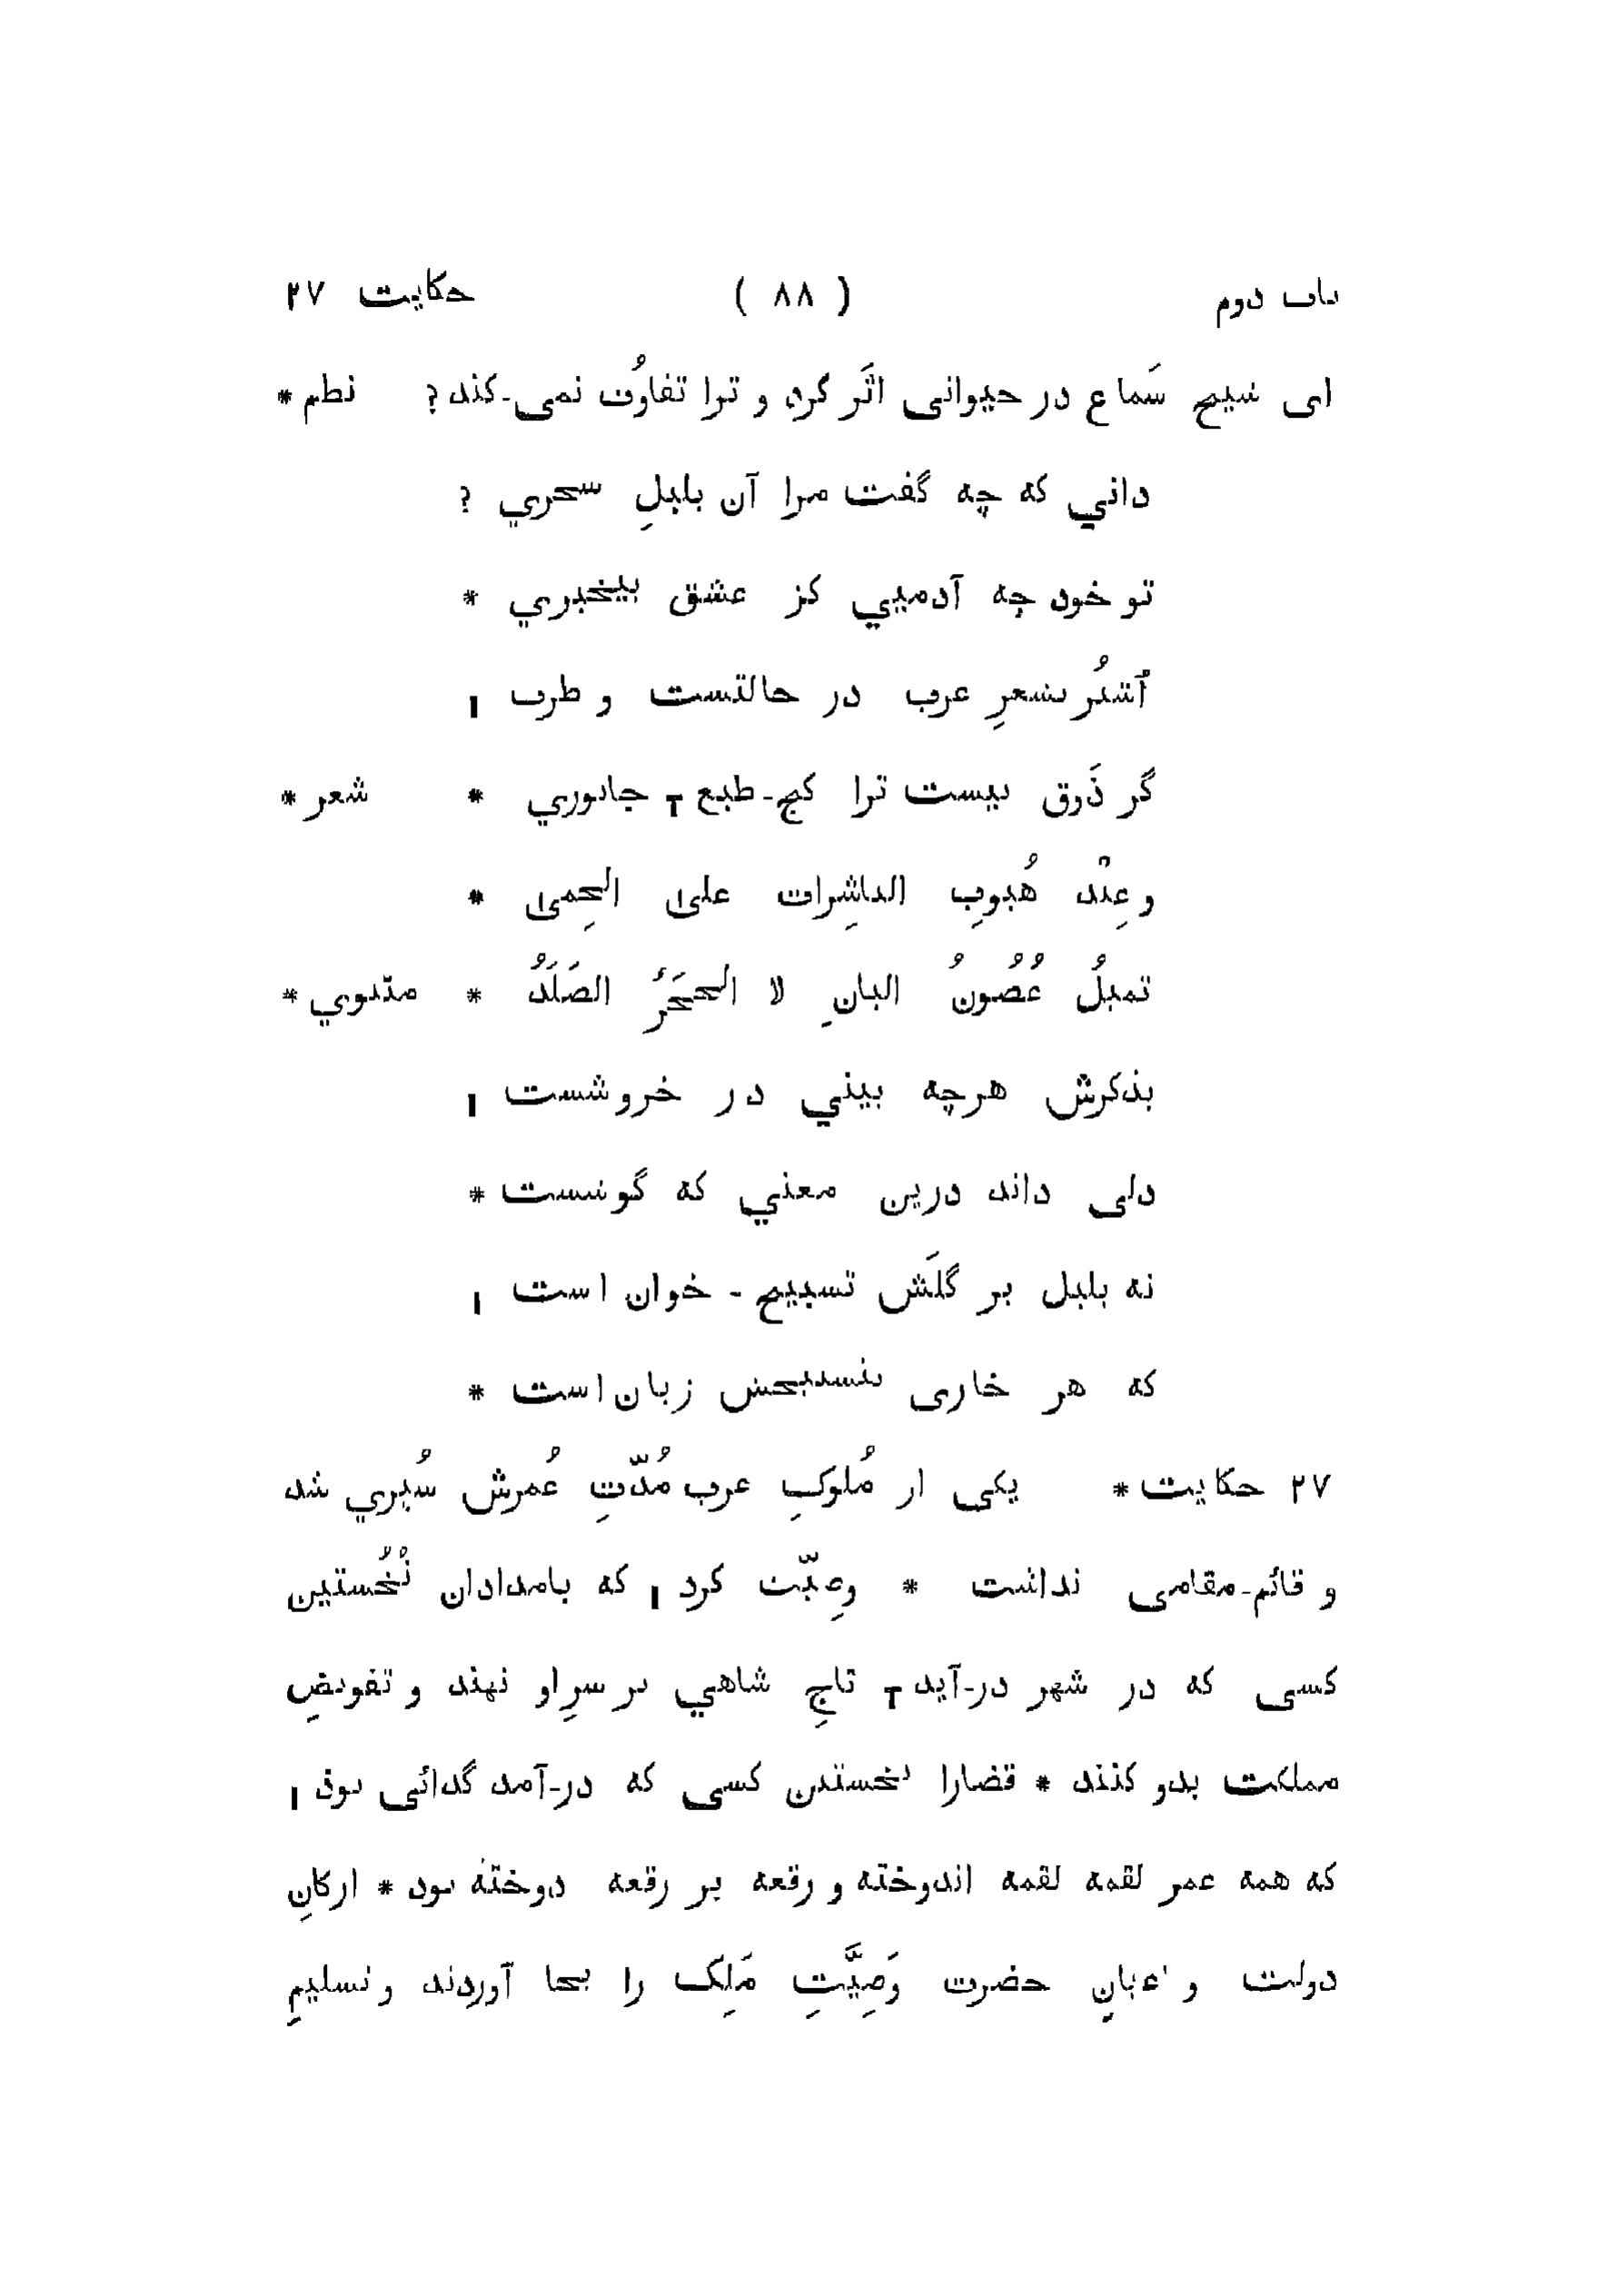 باب دوم ( ۸۸ ) حکایت ۲۷
ای شیخ سَماع در حیوانی اثَر کرد و ترا تفاوُت نمی-کند؟ نظم *
داني که چه گفت مرا آن بلبلِ سحري ؟
تو خود چه آدمیي کز عشق بیخبري *
اُشتُر بشعرِ عرب در حالتست و طرب ا
گر ذَوق نیست ترا کج-طبع T جانوري * شعر *
و عِنْد هُبوبِ الناشِرات علی الحِمی *
تمیلُ غُصُونُ البانِ لا الحجَرُ الصَلَدُ * مثنوي *
بذکرش هرچه بیني در خروشست ا
دلی داند درین معني که گوشست *
نه بلبل بر گلَش تسبیح - خوان است ا
که هر خاری بتسبیحش زبان است *
۲۷ حکایت * یکی از مُلوکِ عرب مُدّتِ عُمرش سُپري شد
و قائم-مقامی نداشت * وصِیّت کرد ا که بامدادان نُخُستین
کسی که در شهر در-آید T تاجِ شاهي بر سرِ او نهند و تفویضِ
مملکت بدو کنند * قضارا نخستین کسی که در-آمد گدائی بود ا
که همه عمر لقمه لقمه اندوخته و رقعه بر رقعه دوخته بود * ارکانِ
دولت و اعیانِ حضرت وَصِیَّتِ مَلِک را بجا آوردند و تسلیمِ